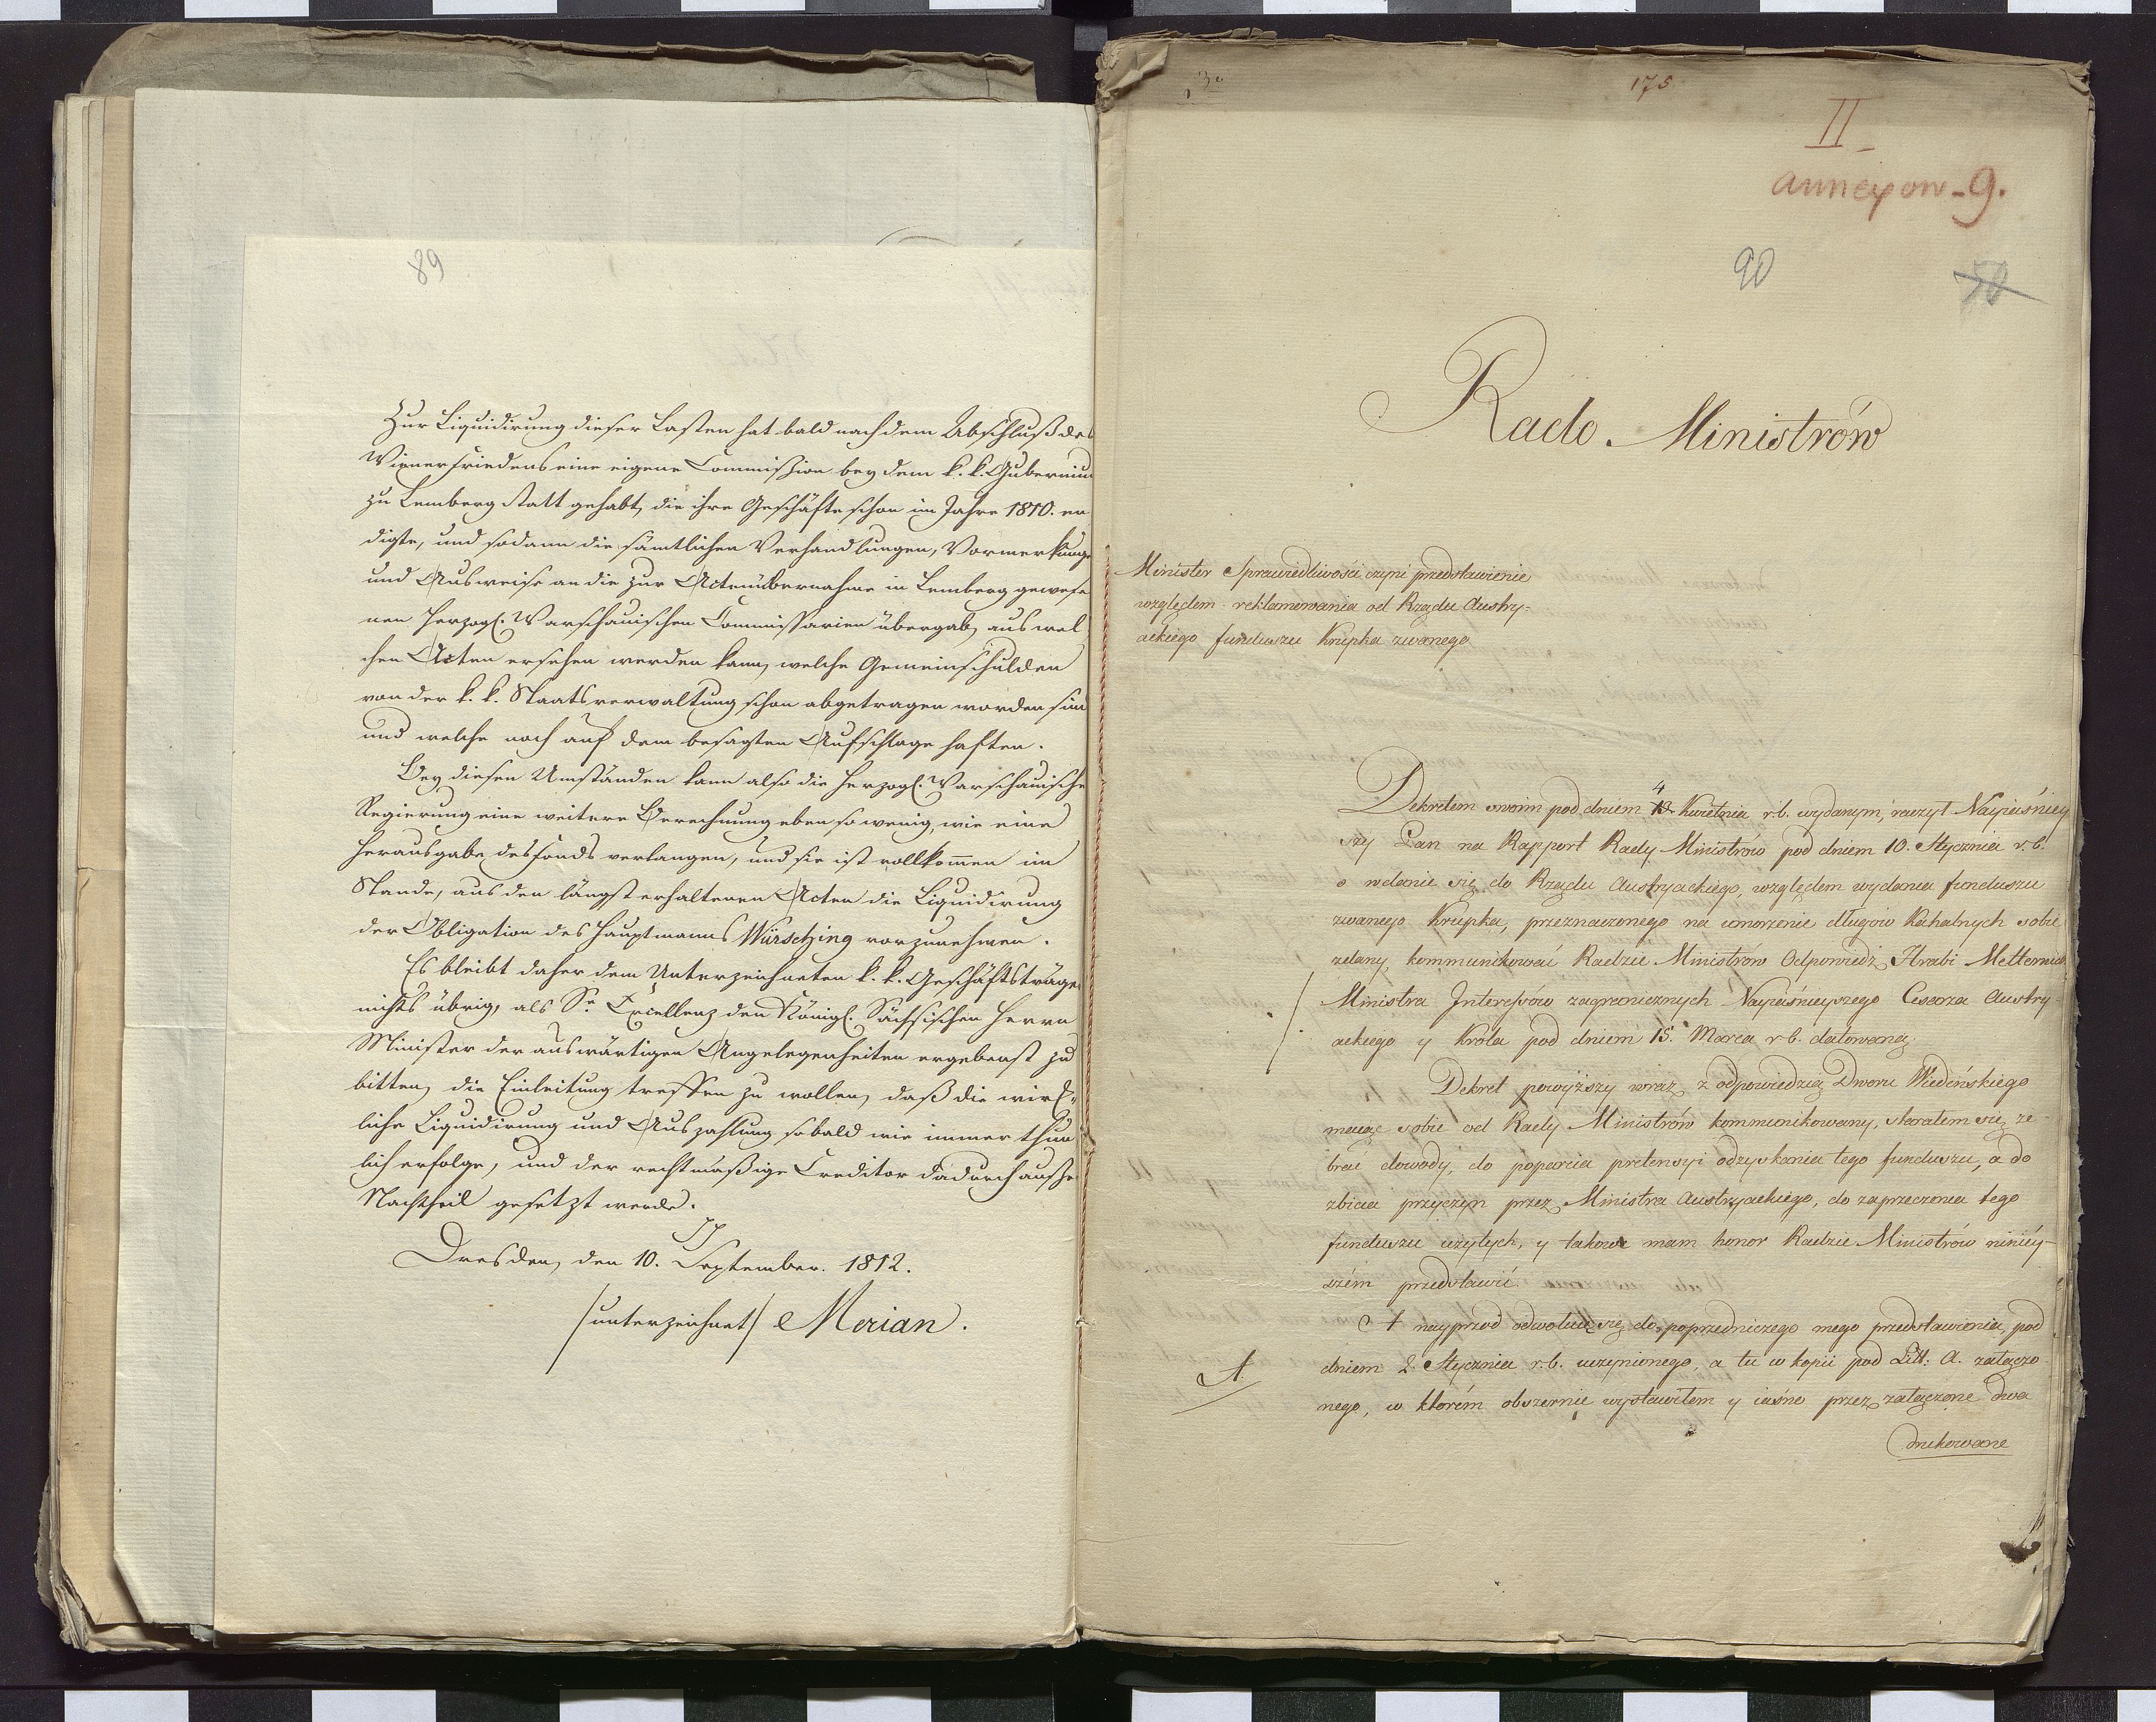 89
Zur Liquidirung dieser Lasten hat bald nach dem Abschluß des
Wienerfriedens eine eigene Commission bey dem k. k. Guberniu
zu Lemberg statt gehabt, die ihre Geschäfte schon im Jahre 1810. en
digte, und sodann die sämtlichen Verhandlungen, Vormerkunge
und Ausweise an die zur Actenübernahme in Lemberg gewese
nen herzogl. Warschauischen Commissarien übergab, aus wel
chen Acten ersehen werden kann, welche Gemeinschulden
von der k. k. Staatsverwaltung schon abgetragen worden sind
und welche noch auf dem besagten Aufschlage haften.
Bey diesen Umständen kann also die herzogl. Warschauische
Regierung eine weitere Berechnung eben so wenig, wie eine
Herausgabe des Fonds verlangen, und sie ist vollkom̄en im
Stande, aus den längst erhaltenen Acten die Liquidirung
der Obligation des Hauptmanns Würsching vorzunehmen.
Es bleibt daher dem Unterzeichneten k. k. Geschäftsträge
nichts übrig, als Sr Excellenz den Königl. Sächsischen Herrn
Minister der auswärtigen Angelegenheiten ergebenst zu
bitten, die Einleitung treffen zu wollen, daß die wirk=
liche Liquidirung und Auszahlung sobald wie immer thun
lich erfolge, und der rechtmäßige Creditor dadurch auße
Nachtheil gesetzt werde.
Dresden, den 10. September. 1812.
/unterzeichnet/ Merian.
175
II
annexow - 9.
90
50
Rada Ministrów
Minister Sprawiedliwości czyni przedstawienie
względem reklamowania od Rządu Austry=
ackiego funduszu Krupka zwanego
Dekretem swoim pod dniem 4 Kwietnia r. b. wydanym, raczył Nayiaśniey
szy Pan na Rapport Rady Ministrów pod dniem 10. Stycznia r. b.
o wdanie się do Rządu Austryackiego, względem wydania funduszu
zwanego Krupka, przeznaczonego na umorzenie długów Kahalnych sobie
zdany, kommunikować Radzie Ministrów Odpowiedź Hrabi Metternich
Ministra Interessów zagranicznych Nayiaśnieyszego Cesarza Austry
ackiego y Króla pod dniem 15. Marca r. b. datowaną.
Dekret powyższy wraz z odpowiedzią Dworu Wiedeńskiego
maiąc sobie od Rady Ministrów kommunikowany, starałem się ze
brać dowody, do poparcia pretensyi odzyskania tego funduszu, a do
zbicia przyczyn przez Ministra Austryackiego, do zaprzeczenia tego
funduszu użytych, y takowe mam honor Radzie Ministrów niniéy-
szém przedstawić.
A nayprzód odwołuię się do poprzedniczego mego przedstawienia, pod
A.
dniem 2. Stycznia r. b. uczynionego, a tu w kopii pod Litt: A. załączo
nego, w którém obszernie wystawiłem y iasno przez załączone dwa
drukowane